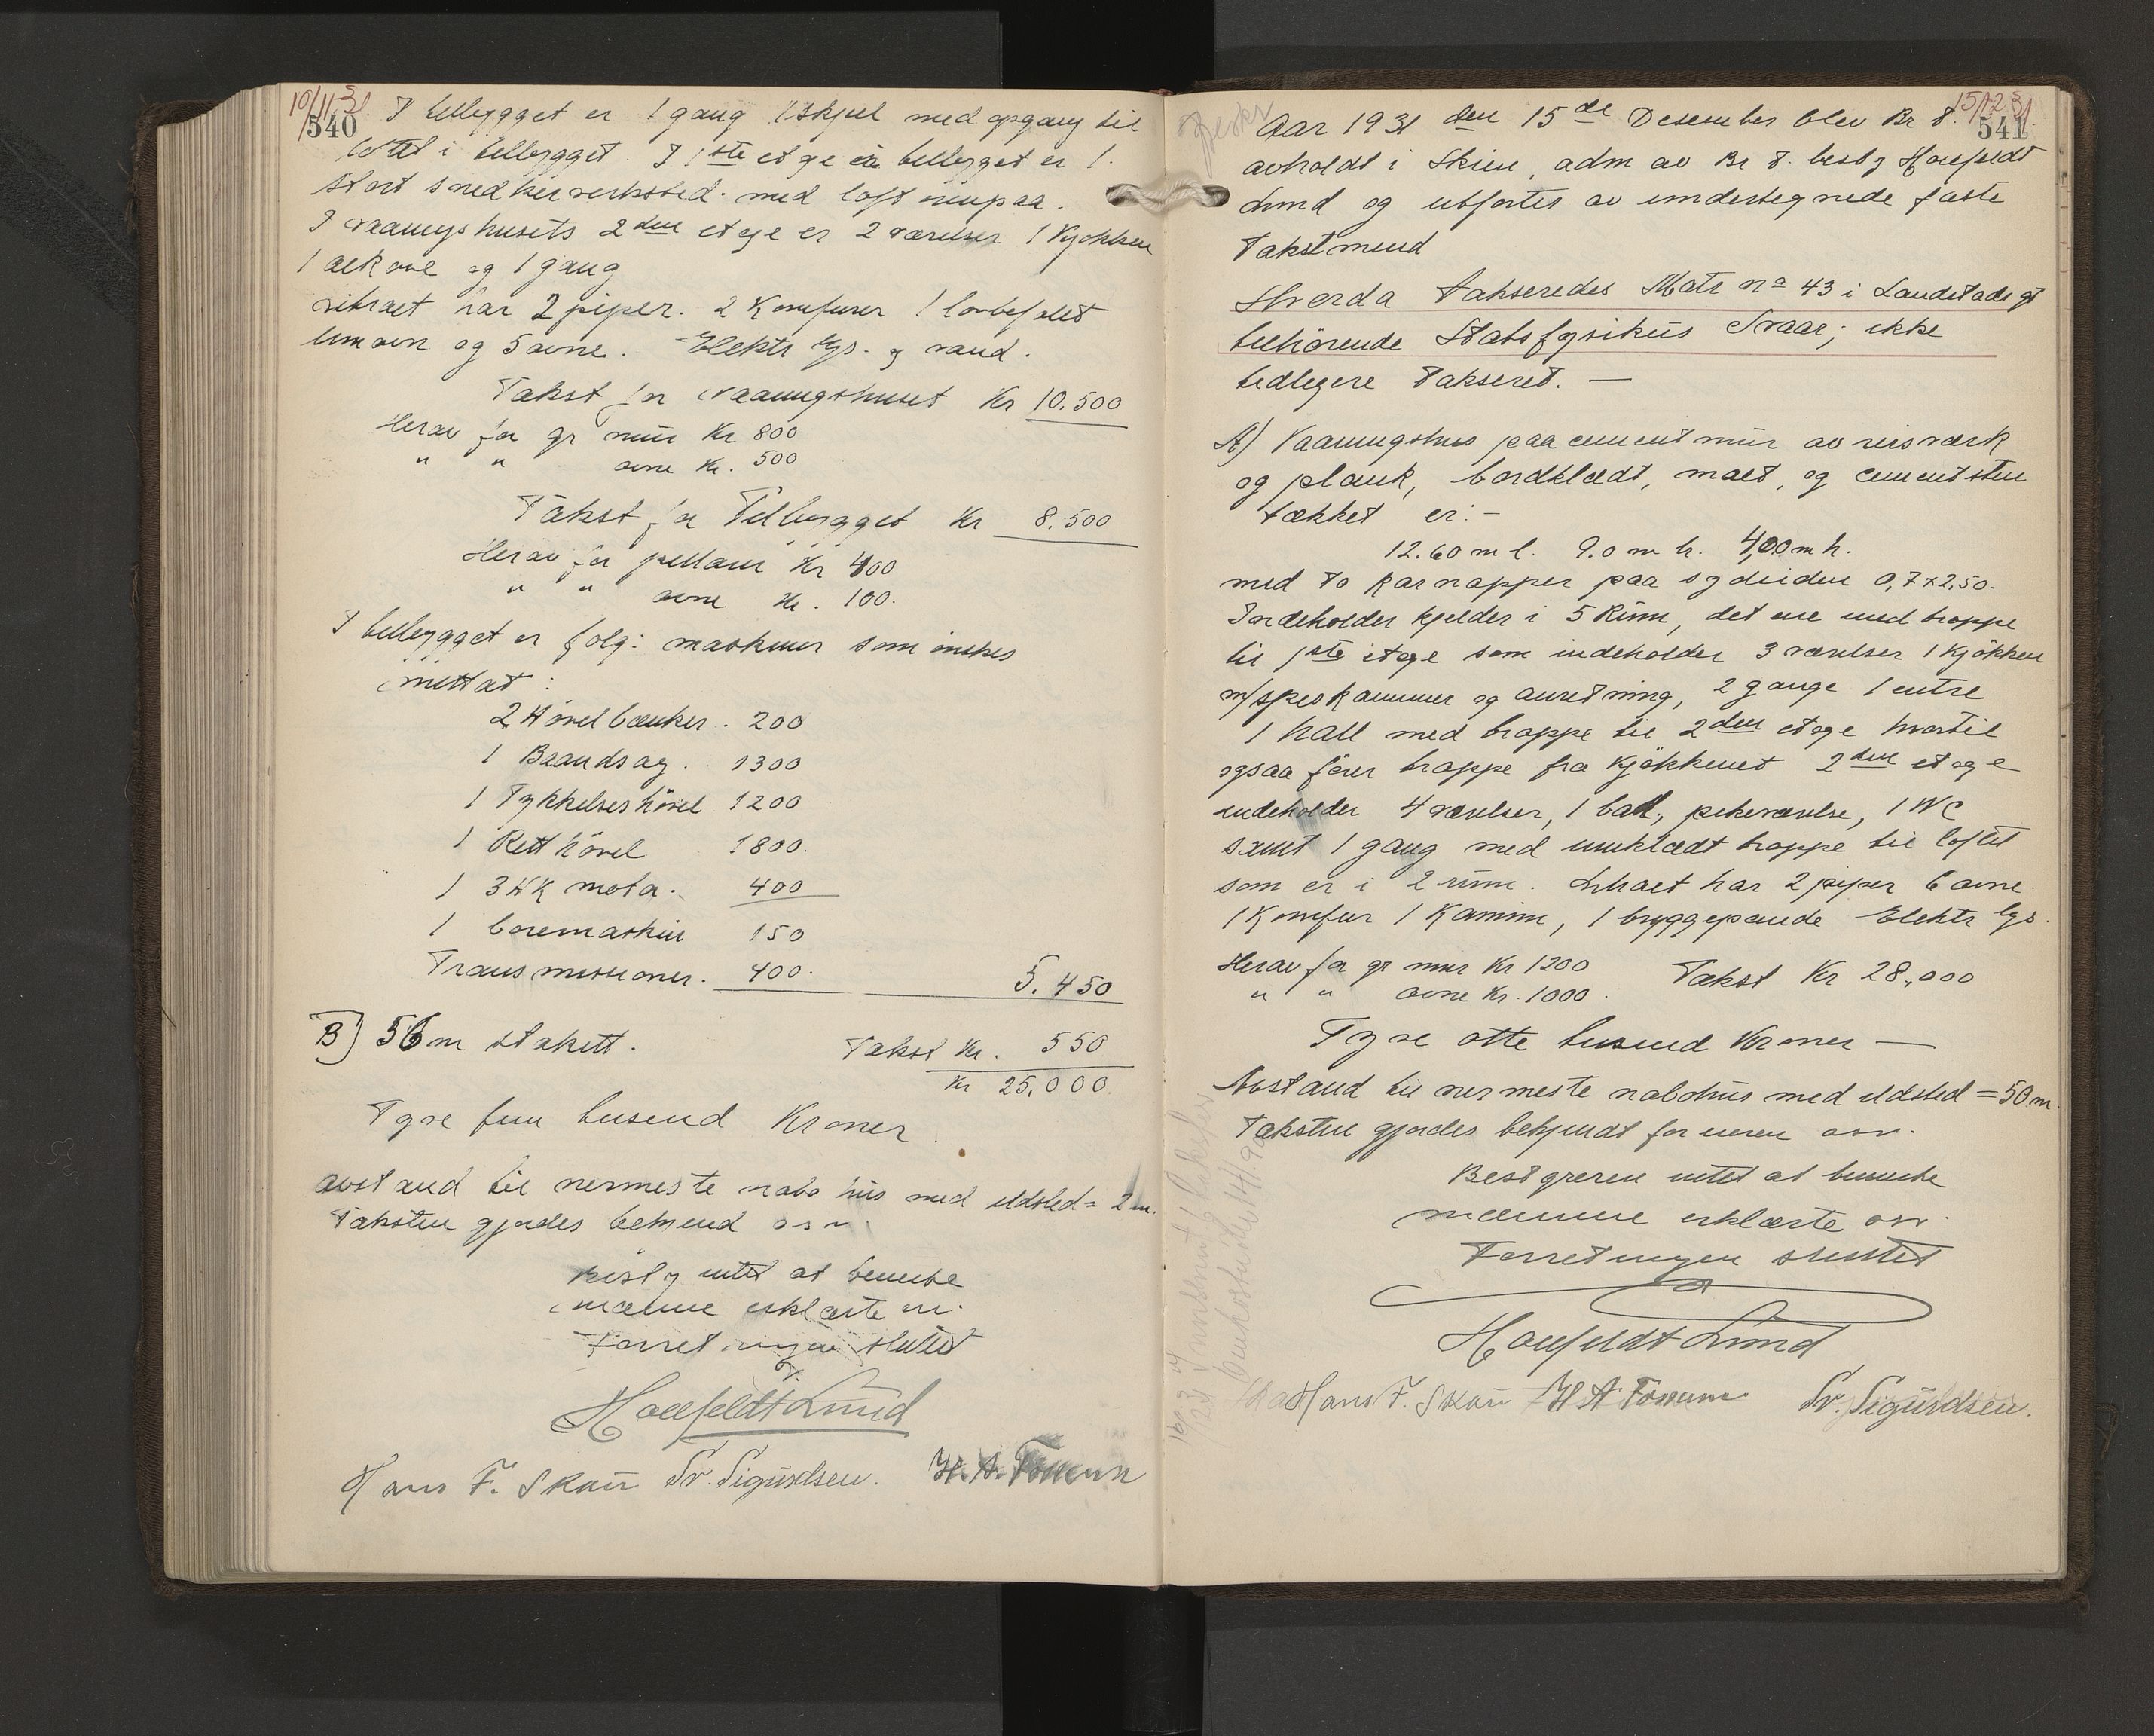 10/11 31.
540
I tilbygget er 1 gang 1 skjul med opgang til
loftet i tilbygget. I 1ste etage i tilbygget er 1.
stort snedkerverksted. med loft ovenpaa.
I vaaningshusets 2den etage er 2 værelser 1 kjøkken
1 alkove og 1 gang
huset har 2 piper. 2 Komfurer 1 lovbefalet
limovn og 5 ovne. Elektr lys. og vand.
Takst for Vaaningshuset Kr 10.500
Herav for gr mur Kr 800
" " ovne Kr. 500
Takst for Tilbygget Kr 8.500
Herav for pillarer Kr 400
" " ovne Kr. 100.
I tilbygget er følg: maskiner som ønskes
inntat:
2 Høvelbænker. 200
1 Baandsag. 1300
1 Tykkelseshøvel 1200
1 Retthøvel 1800.
1 3 HK motor. 400
1 boremaskin 150
Transmissioner. 400. 5.450
B) 56 m stakett. Takst Kr. 550
Kr 25.000.
Tyve fem tusend Kroner
avstand til nermeste nabohus med ildsted = 2 m.
Taksten gjordes bekjend osv.
Best. intet at bemerke
mænnene erklærte osv.
Forretningen sluttet
Houfeldt Lund
Hans F. Skau Sv. Sigurdsen. H. A. Fossum
15/12 31.
541
Aar 1931 den 15de Desember blev Br 8.
avholdt i Skien, adm av Br 8. best. Houfeldt
Lund og utførtes av undertegnede faste
Takstmend
Hverda Takseredes Matr no 43 i Landstads gt
tilhørende Stadsfysikus Svaar; ikke
tidligere Takseret. —
A) Vaaningshus paa cementmur av reisværk
og plank, bordklædt, malt, og cementsten
tækket er: -
12.60 m l. 9.0 m b. 4,00 m h.
med to karnapper paa sydsiden 0,7 x 2,50.
Indeholder kjelder i 5 Rum, det ene med trappe
til 1ste etage som indeholder 3 værelser 1 kjøkken
m/spiskammer og anretning, 2 gange 1 entre
1 hall med trappe til 2den etage hvortil
ogsaa fører trappe fra kjøkkenet 2den etage
indeholder 4 værelser, 1 bad, pikeværelse, 1 WC
samt 1 gang med innklædt trappe til loftet
som er i 2 rum. huset har 2 piper 6 ovne.
1 Komfur 1 Kamin, 1 bryggepande Elektr lys.
Herav for gr mur Kr 1200 Takst Kr 28,000
" " ovne Kr. 1000.
Tyve otte tusend Kroner —
Avstand til nermeste nabohus med ildsted = 50 m.
Taksten gjordes bekjendt for eieren osv.
Bestyreren intet at bemerke
mænnene erklærte osv.
Forretningen sluttet
Houfeldt Lund
Hans F. Skau H A Fossum Sv. Sigurdsen.